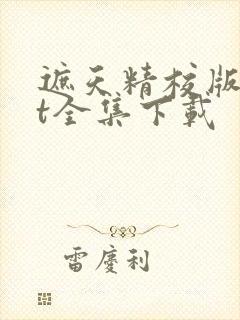 遮天精校版
t全集下载
雷慶利